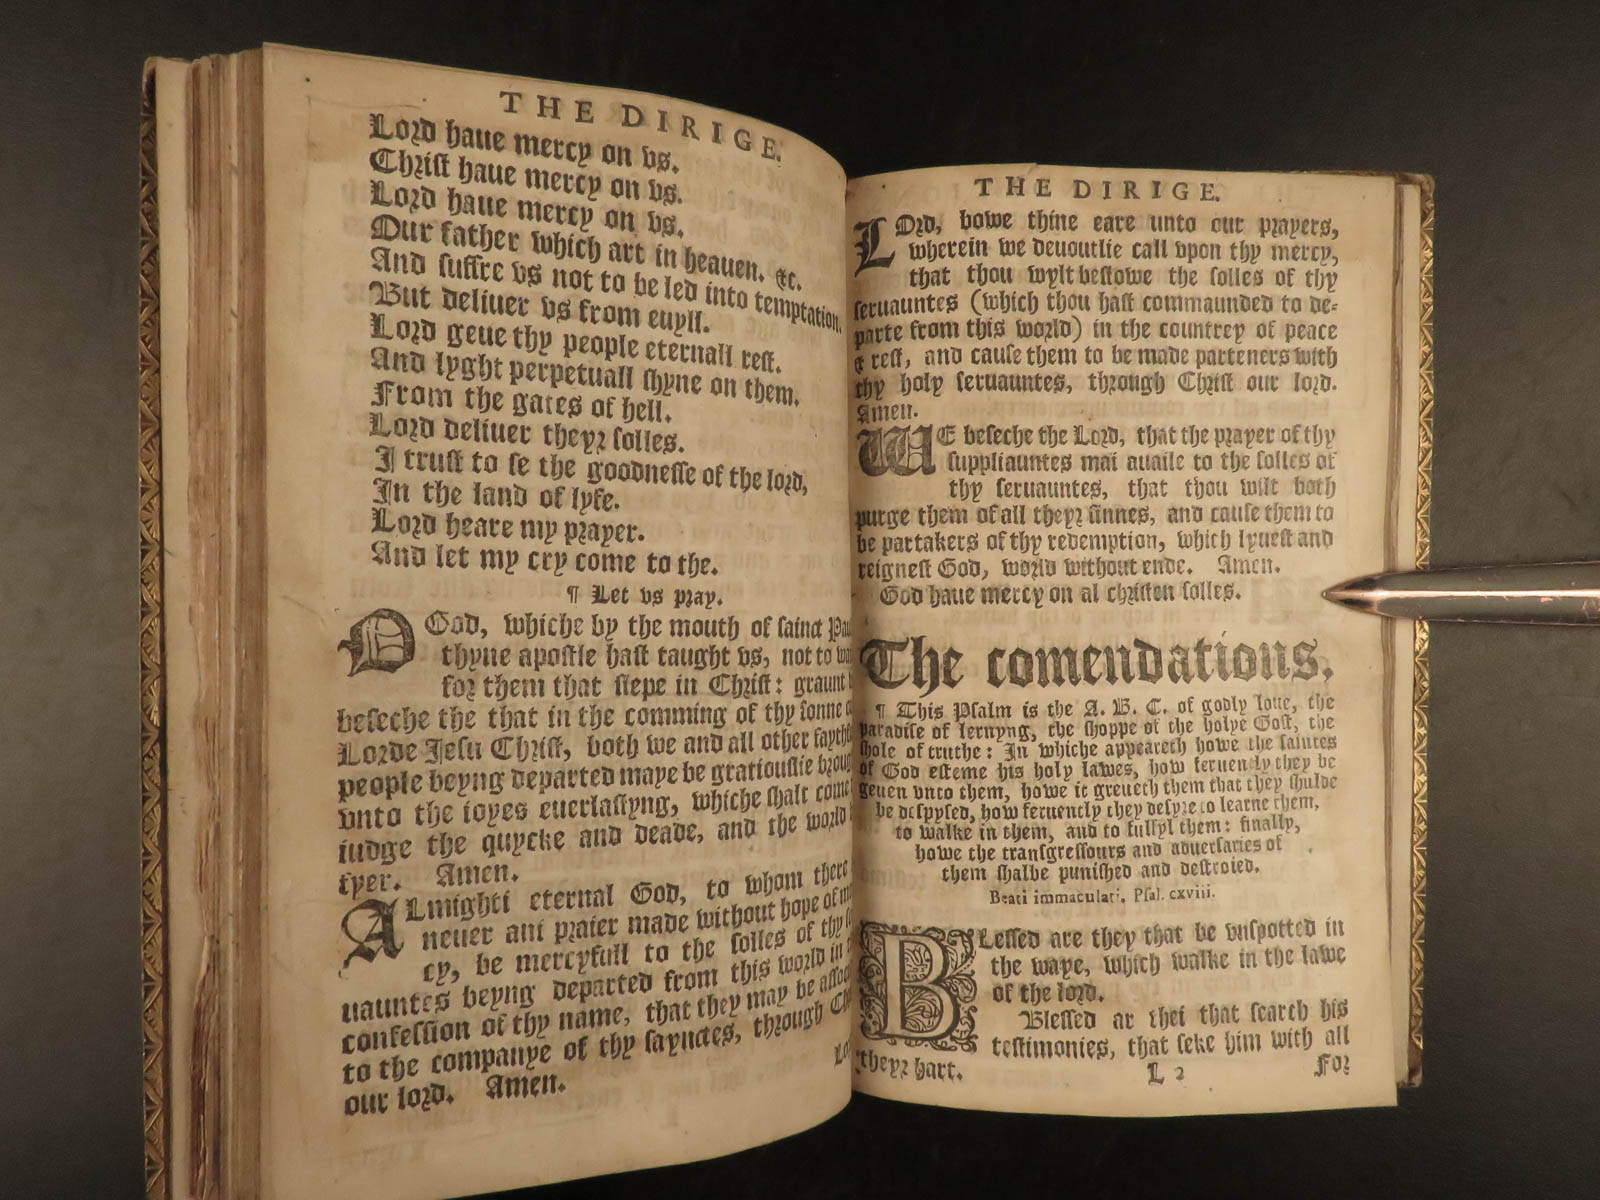 THE DIRIGE.
Lord haue mercy on vs.
Christ haue mercy on vs.
Lord haue mercy on vs.
Our father which art in heauen. &c.
And suffre vs not to be led into temptation.
But deliuer vs from euyll.
Lord geue thy people eternall rest.
And lyght perpetuall shyne on them.
From the gates of hell.
Lord deliuer theyr solles.
I trust to se the goodnesse of the lord,
In the land of lyfe.
Lord heare my prayer.
And let my cry come to the.
¶ Let vs pray.
O God, whiche by the mouth of sainct
thyne apostle hast taught vs, not to
for them that slepe in Christ: graunt
beseche the that in the comming of thy sonne
Lorde Jesu Christ, both we and all other
people beyng departed maye be gratiouslie
vnto the ioyes euerlastyng, whiche shalt come
iudge the quycke and deade, and the world
fyer. Amen.
ALmighti eternal God, to whom there
neuer ani praier made without hope of
cy, be mercyfull to the solles of thy
uauntes beyng departed from this world in
confession of thy name, that they may be
to the companye of thy saynctes, through
our lord. Amen.
THE DIRIGE.
LOrd, bowe thine eare unto our prayers,
wherein we deuoutlie call vpon thy mercy,
that thou wylt bestowe the solles of thy
seruauntes (which thou hast commaunded to de-
parte from this world) in the countrey of peace
& rest, and cause them to be made parteners with
thy holy seruauntes, through Christ our lord.
Amen.
WE beseche the Lord, that the prayer of thy
suppliauntes mai auaile to the solles of
thy seruauntes, that thou wilt both
purge them of all theyr sinnes, and cause them to
be partakers of thy redemption, which lyuest and
reignest God, world without ende. Amen.
God haue mercy on al christen solles.
The comendations.
¶ This Psalm is the A. B. C. of godly loue, the
paradise of lernyng, the shoppe of the holye Gost, the
shole of truthe: In whiche appeareth howe the saintes
of God esteme his holy lawes, how feruently they be
geuen vnto them, howe it greueth them that they shulde
be despysed, how feruently they desyre to learne them,
to walke in them, and to fulfyl them: finally,
howe the transgressours and aduersaries of
them shalbe punished and destroied.
Beati immaculati. Psal. cxviii.
BLessed are they that be vnspotted in
the waye, which walke in the lawe
of the lord.
Blessed ar thei that search his
testimonies, that seke him with all
theyr hart.
L 2 For